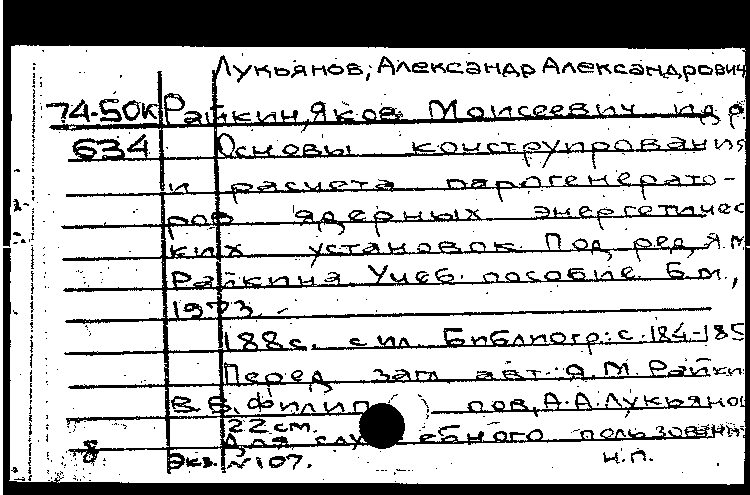 Лукьянов, Александр Александрович
74-50к Райкин, Яков Моисеевич и др.
634 Основы конструирования
и расчета парогенерато-
ров ядерных энергетичес
ких установок. Под ред. Я.М.
Райкина. Учеб. пособие. Б.м.,
1973. -
188с. с ил. Библиогр: с. 184-185
Перед загл. авт.: Я.М. Райки
В.Б. Филиппов, А.А. Лукьяно
22 см.
Для служебного пользования
8 экз. №107. н.п.